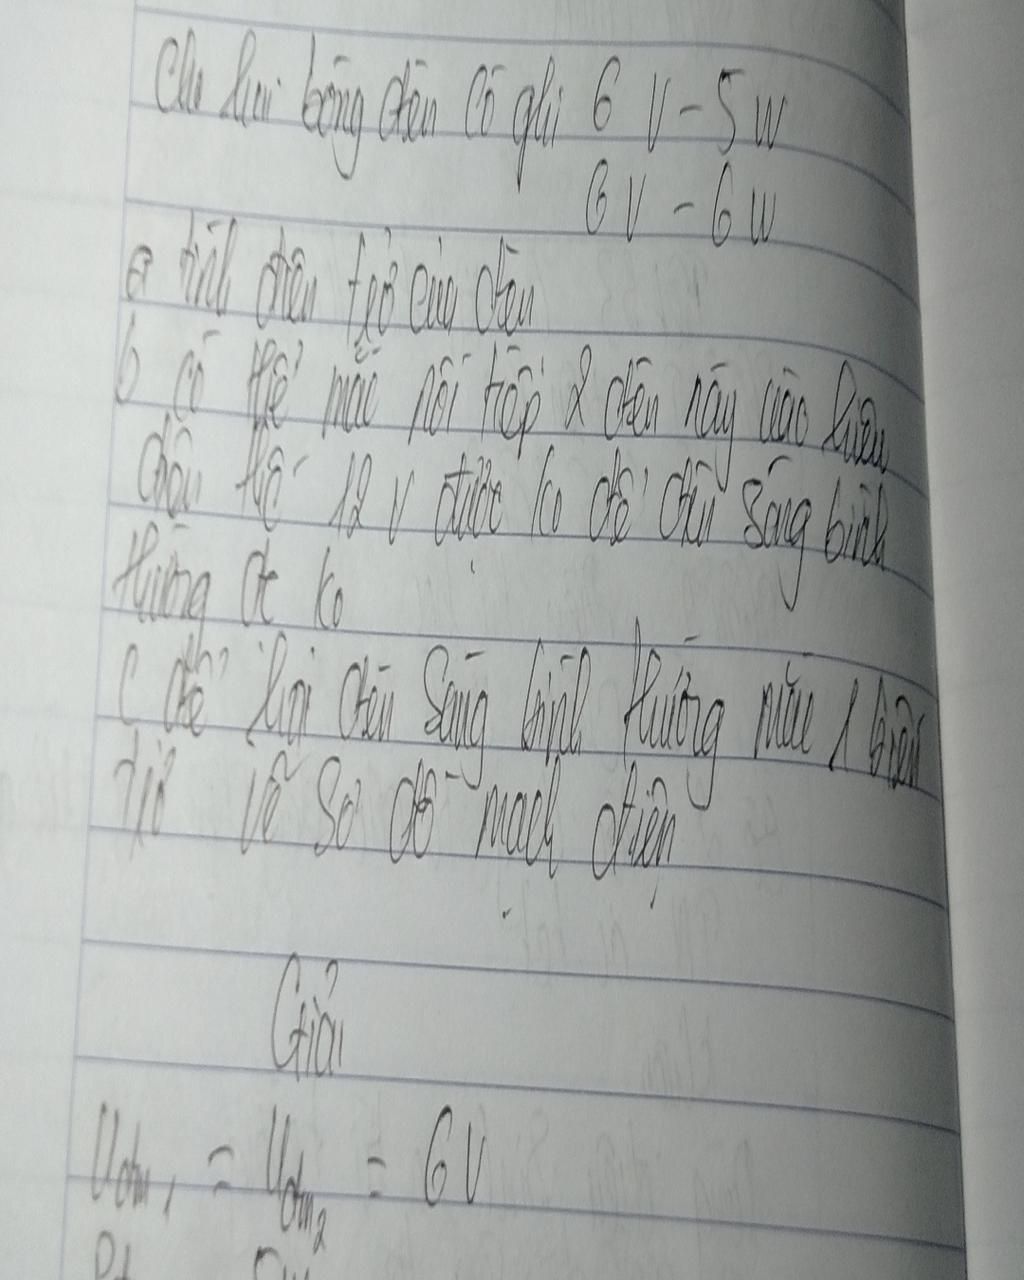 Cho hai bóng đèn có ghi 6 V - 5 W
6 V - 6 W
a tính điện trở của đèn
b có thể mắc nối tiếp 2 đèn này vào hiệu
điện thế 12 V được ko để đèn sáng bình
thường đc ko
c để hai đèn sáng bình thường mắc 1 biến
trở vẽ sơ đồ mạch điện
Giải
Uđm1 = Uđm2 = 6V